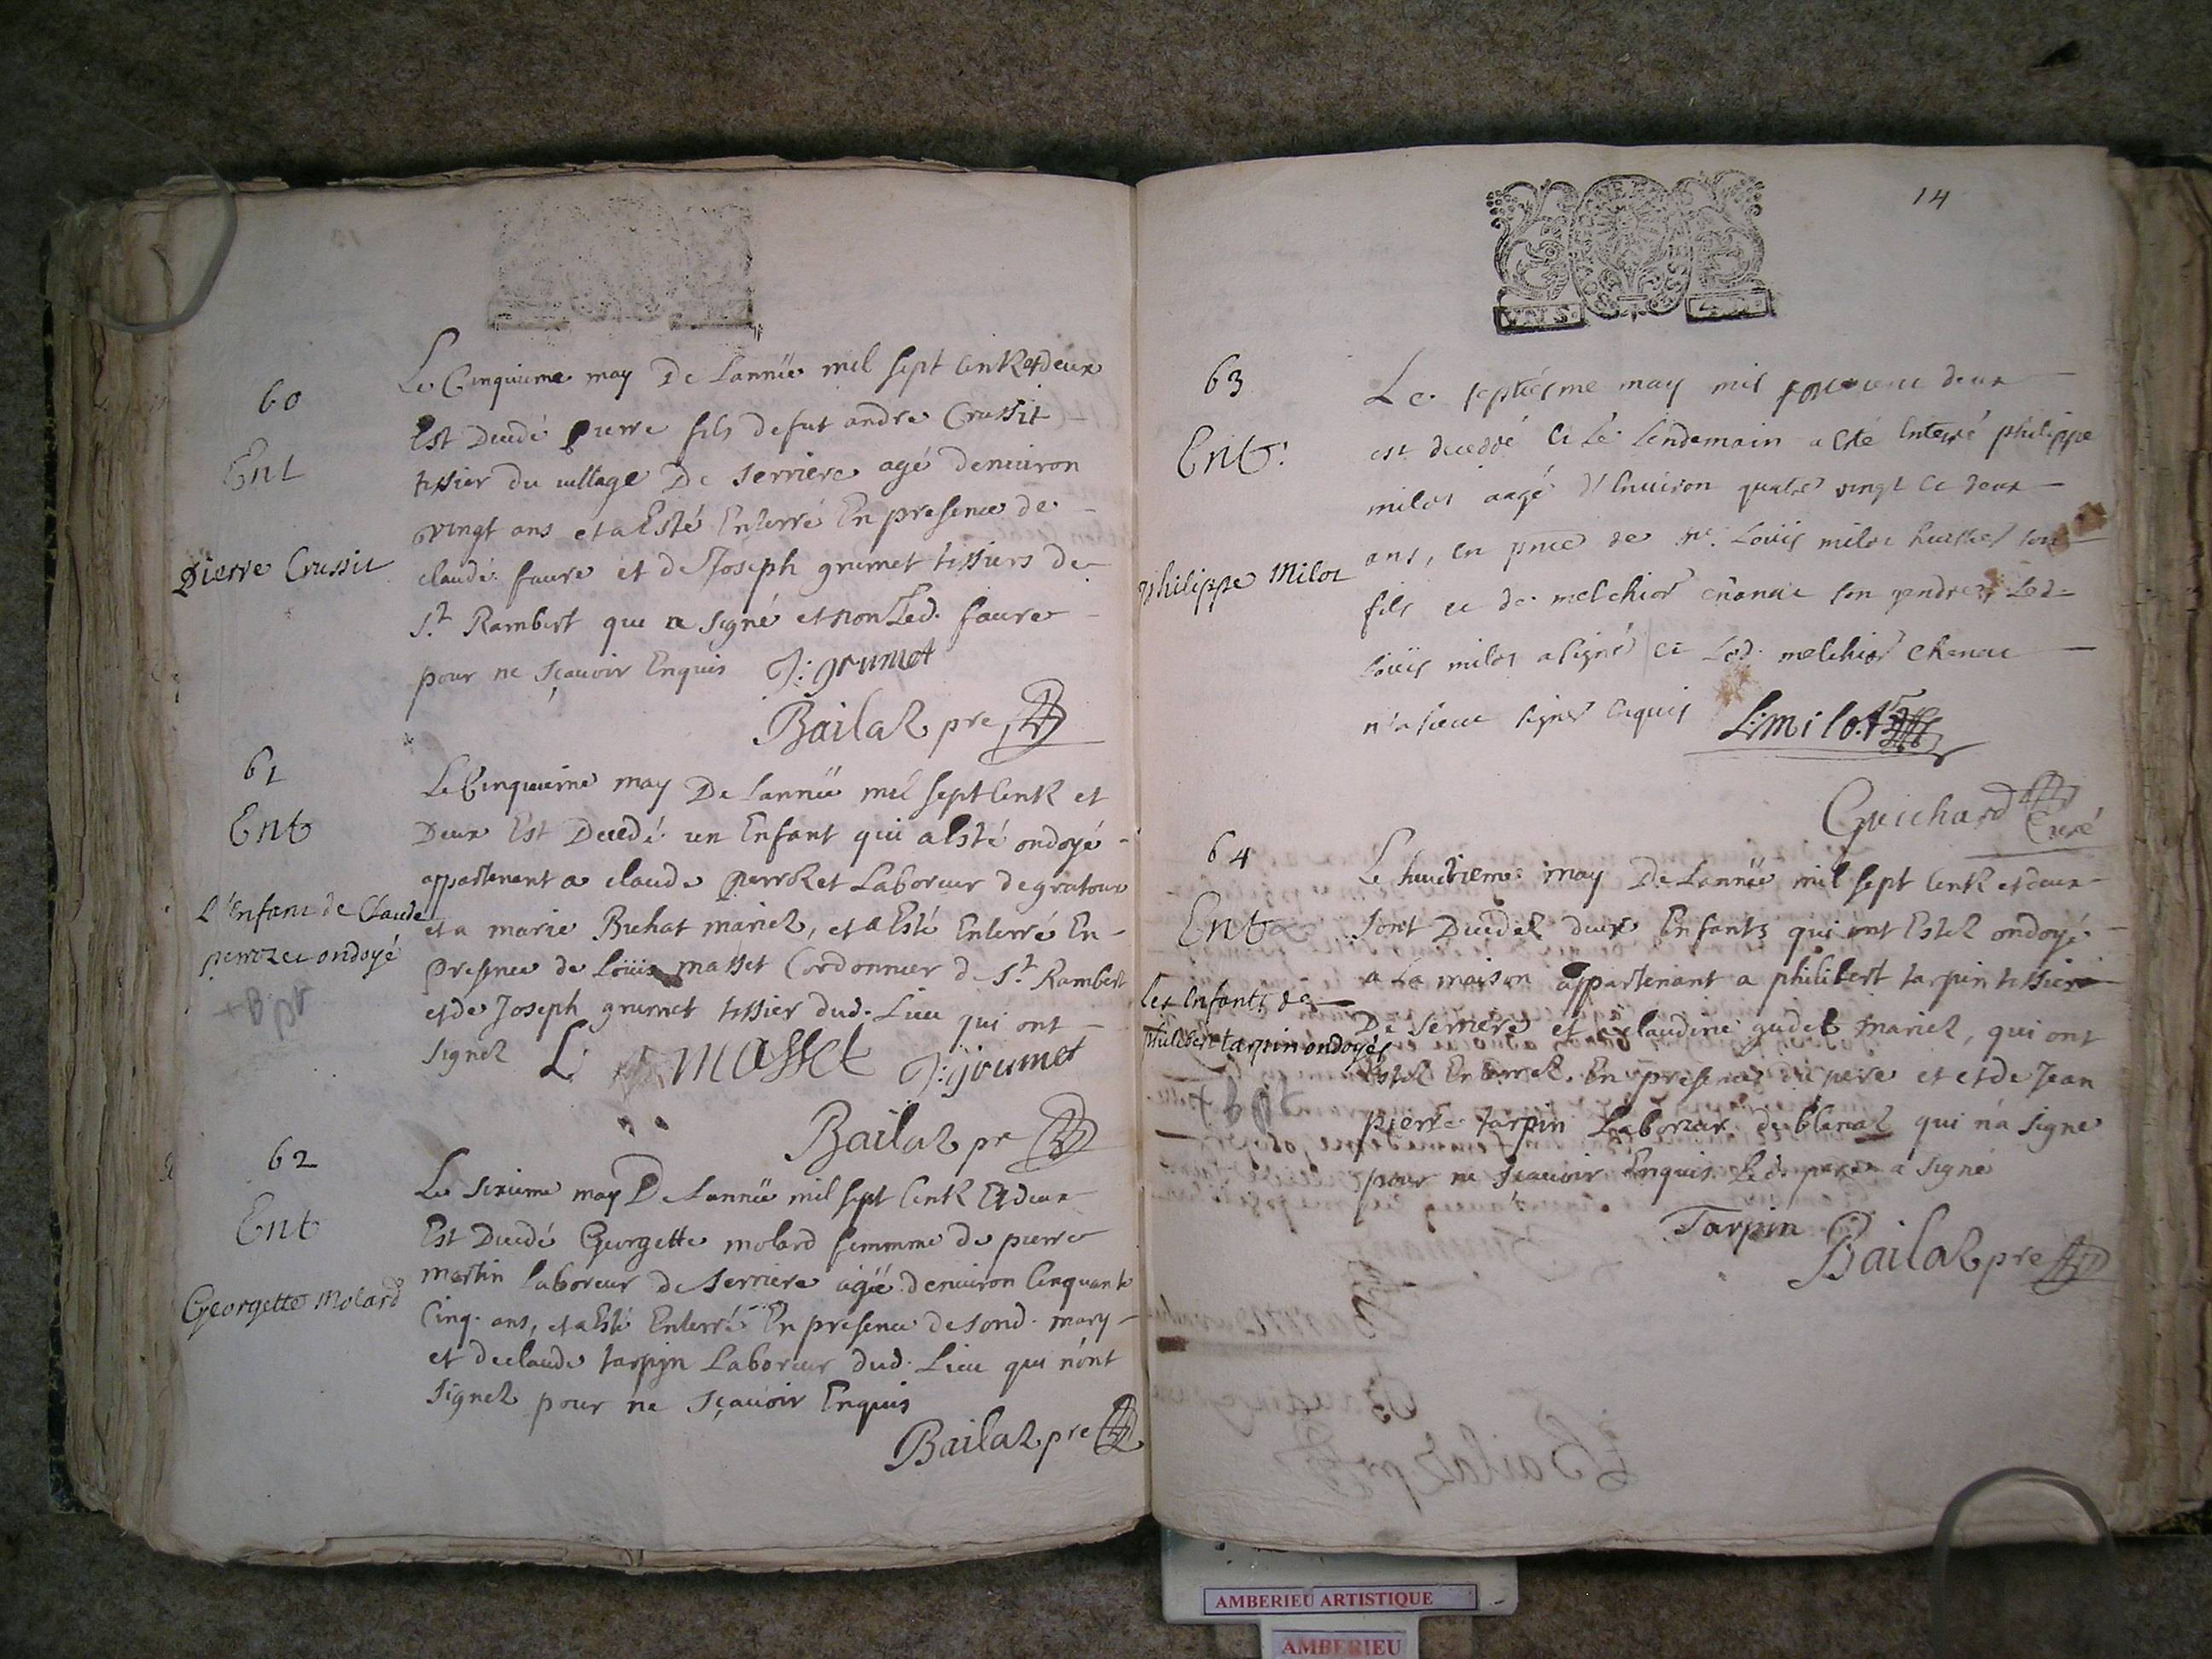 60
Ent
Pierre Crussit
Le Cinquieme may De Lannëe mil sept cent et deux
Est Decedé pierre fils defut andre Crussit
tissier du village De Serriere agé denuiron
vingt ans et a Esté Enterré En presence de
claude faure et de Joseph grumet tissiers de
St. Rambert que a signé et non Led. faure
pour ne sçauoir Enquis J: grumet
Bailaz pre
61
Ent
L'Enfant de Claude
perrozet ondoyé
+ B pt
Le Cinquieme may De Lannëe mil sept cent et
Deux Est Decedé un Enfant qui a Esté ondoyé
appartenant a claude perrozet Laboreur de gratoux
et a marie Buhat mariez, et a Esté Enterré En
presence de Loüis masset Cordonnier de St. Rambert
et de Joseph grumet tissier dud. Lieu qui ont
signez L masset J: grumet
Bailaz pr
62
Ent
Georgette Molard
Le sixieme may De Lannëe mil sept cent Et deux
Est Decedé Georgette molard femmme de pierre
martin laboreur de Serriere agëe denuiron Cinquante
Cinq. ans, et a Esté Enterré En presence de sond. mary
et de claude tarpin Laboreur dud. Lieu qui n'ont
signez pour ne sçauoir Enquis
Bailaz pre
14
63
Ent.
philippe Milot
Le septiesme may mil deux
est decedé et Le Lendemain a esté Enterré philippe
milot aagé d'Enuiron quatre vingt et deux
ans, en pnce de me. Loüis milot huissier son
fils et de melchior chenaut son gendre, Led.
Loüis milot a signé et Led. melchior chenaut
n'a sceut signer enquis L: milot
Guichard Curé
64
Ent
Les Enfants de
philibert tarpin ondoyés
Le huictieme may De Lannëe mil sept cent et deux
sont Decedez deux Enfants qui ont Estez ondoyé
a La maison appartenant a philibert tarpin tissier
De Serriere et claudine gudet mariez, qui ont
Estez Enterrez, En presence du pere et et de Jean
pierre tarpin Laboreur de blanaz qui n'a signé
pour ne sçauoir Enquis Led. pere a signé
Tarpin
Bailaz pre
AMBERIEU ARTISTIQUE
AMBERIEU